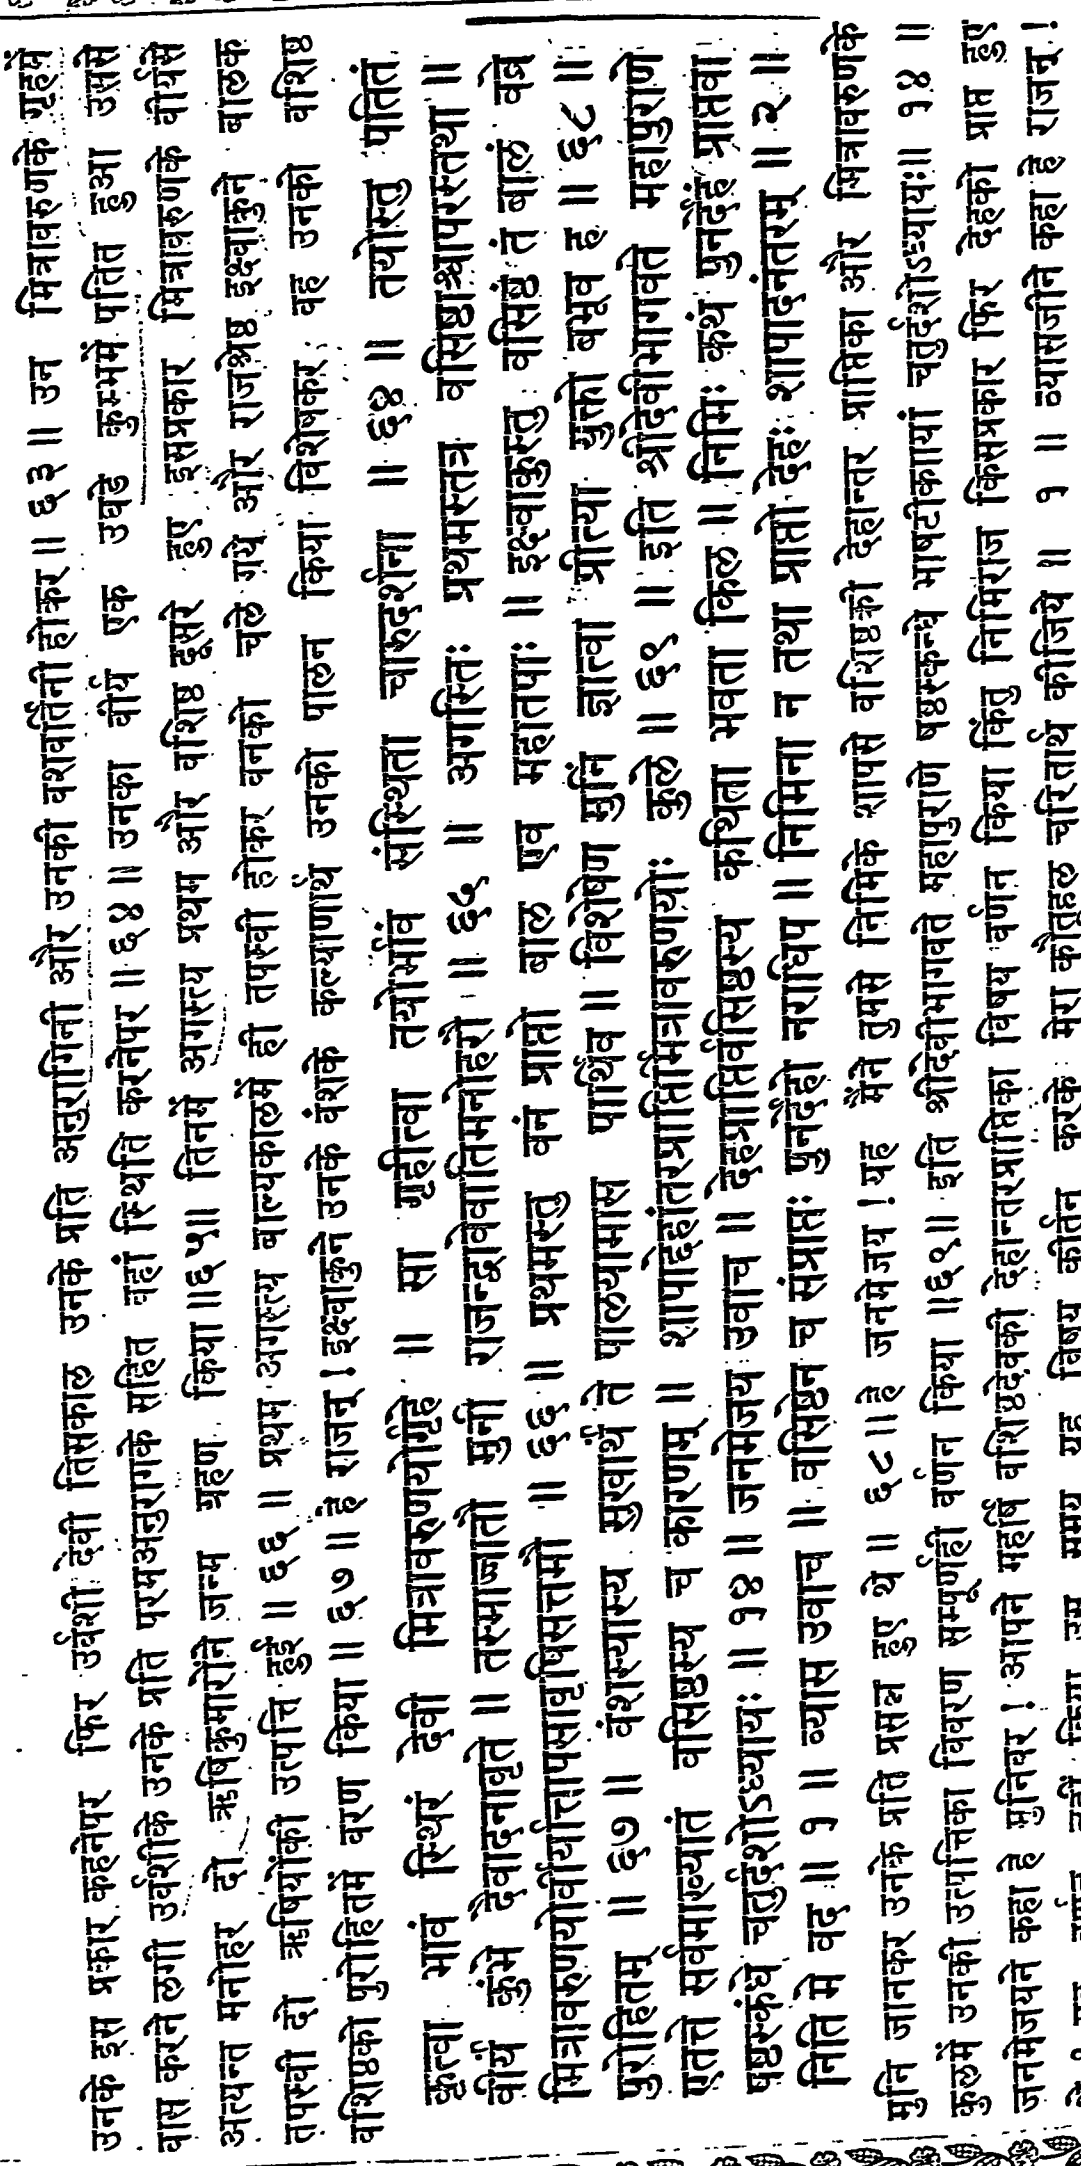 उनके इस प्रकार कहनेपर फिर उर्वशी देवी तिसकाल उनके प्रति अनुरागिनी और उनकी वशवर्तिनी होकर ॥ ६३ ॥ उन मित्रावरुणके गृहमें
वास करने लगी उर्वशीके उनके प्रति परमअनुरागके सहित वहां स्थिति करनेपर ॥ ६४ ॥ उनका वीर्य एक उघडे कुम्भमें पतित हुआ उससे
अत्यन्त मनोहर दो ऋषिकुमारोंने जन्म ग्रहण किया ॥६५॥ तिनमें अगस्त्य प्रथम और वशिष्ठ दूसरे हुए इसप्रकार मित्रावरुणके वीर्यसे
तपस्वी दो ऋषियोंकी उत्पत्ति हुई ॥ ६६ ॥ प्रथम अगस्त्य बाल्यकालमें ही तपस्वी होकर वनको चले गये और राजश्रेष्ठ इक्ष्वाकुने बालक
वशिष्ठको पुरोहितमें वरण किया ॥ ६७ ॥ हे राजन् ! इक्ष्वाकुने उनके वंशके कल्याणार्थ उनको पालन किया विशेषकर वह उनको वशिष्ठ
कृत्वा भावं स्थिरं देवी मित्रावरुणयोर्गृहे ॥ सा गृहीत्वा तयोर्भावं संस्थिता चारुदर्शना ॥ ६४ ॥ तयोस्तु पतितं
वीर्यं कुंभे दैवादनावृते ॥ तस्माज्जातौ मुनी राजन्द्वावेवातिमनोहरौ ॥ ६५ ॥ अगस्तिः प्रथमस्तत्र वसिष्ठश्चापरस्तथा ॥
मित्रावरुणयोर्वीर्यात्तापसावृषिसत्तमौ ॥ ६६ ॥ प्रथमस्तु वनं प्राप्तो बाल एव महातपाः ॥ इक्ष्वाकुस्तु वसिष्ठं तं बालं वव्रे
पुरोहितम् ॥ ६७ ॥ वंशस्यास्य सुखार्थं ते पालयामास पार्थिव ॥ विशेषेण मुनिं ज्ञात्वा प्रीत्या युक्तो बभूव ह ॥ ६८ ॥
एतत्ते सर्वमाख्यातं वसिष्ठस्य च कारणम् ॥ शापाद्देहांतरप्राप्तिर्मित्रावरुणयोः कुले ॥ ६९ ॥ इति श्रीदेवीभागवते महापुराणे
षष्ठस्कंधे चतुर्दशोऽध्यायः ॥ १४ ॥ जनमेजय उवाच ॥ देहप्राप्तिर्वसिष्ठस्य कथिता भवता किल ॥ निमिः कथं पुनर्देहं प्राप्तवा
निति मे वद ॥ १ ॥ व्यास उवाच ॥ वसिष्ठेन च संप्राप्तः पुनर्देहो नराधिप ॥ निमिना न तथा प्राप्तो देहः शापादनंतरम् ॥ २ ॥
मुनि जानकर उनके प्रति प्रसन्न हुए थे ॥ ६८ ॥ हे जनमेजय ! यह मैंने तुमसे निमिके शापसे वशिष्ठको देहान्तर प्राप्तिका और मित्रावरुणके
कुलमें उनकी उत्पत्तिका विवरण सम्पूर्णही वर्णन किया ॥६९॥ इति श्रीदेवीभागवते महापुराणे षष्ठस्कन्धे भाषाटीकायां चतुर्दशोऽध्यायः॥ १४ ॥
जनमेजयने कहा हे मुनिवर ! आपने महर्षि वशिष्ठदेवकी देहान्तरप्राप्तिका विषय वर्णन किया किंतु निमिराज किसप्रकार फिर देहको प्राप्त हुए
यह विषय कीर्तन करके मेरा कौतूहल चरितार्थ कीजिये ॥ १ ॥ व्यासजीने कहा हे राजन् !